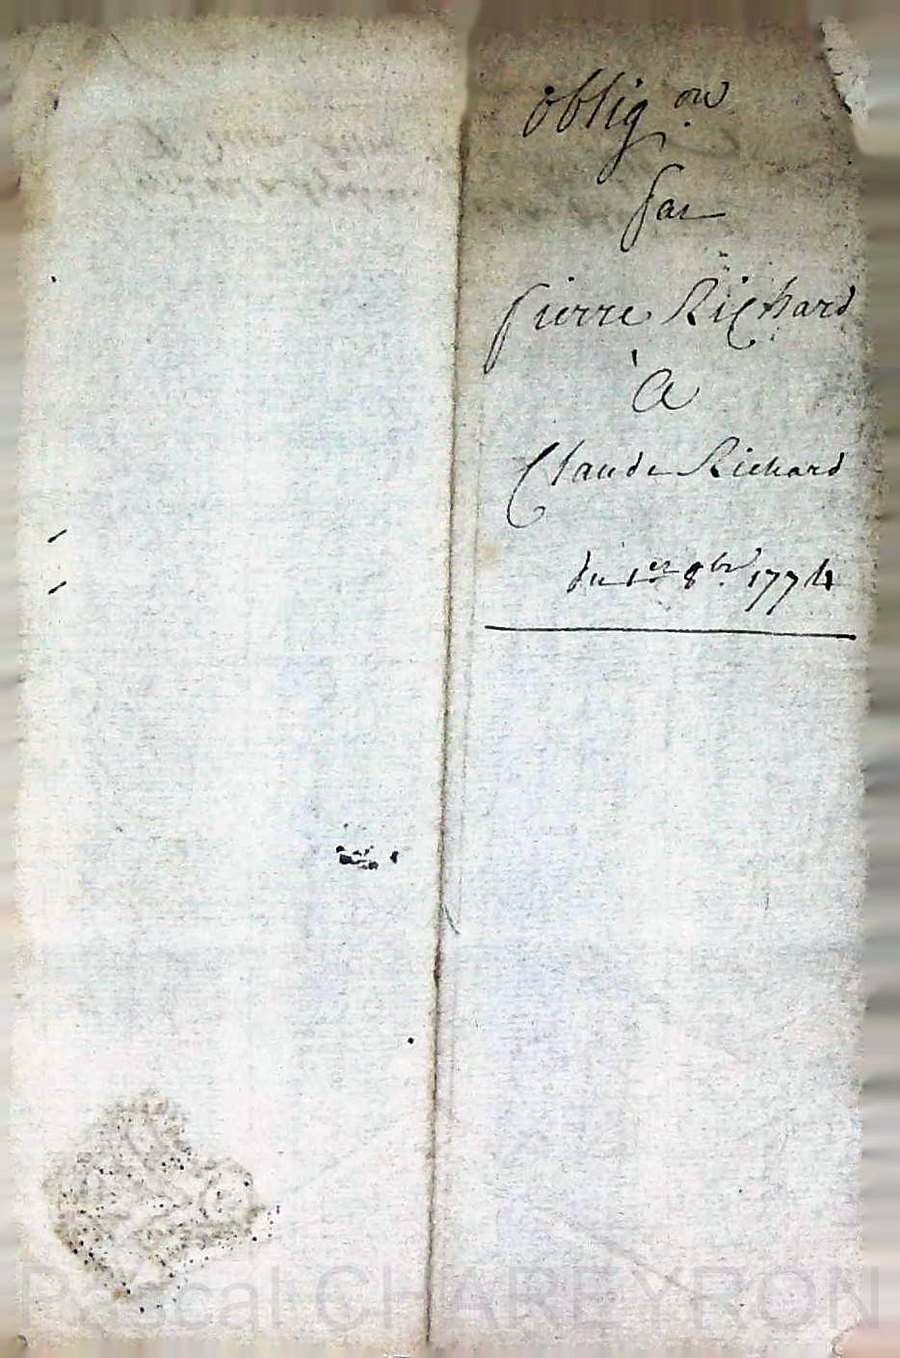 oblig.on
par
pierre Richard
à
Claude Richard
du 1er 8bre 1774
Pascal CHAREYRON